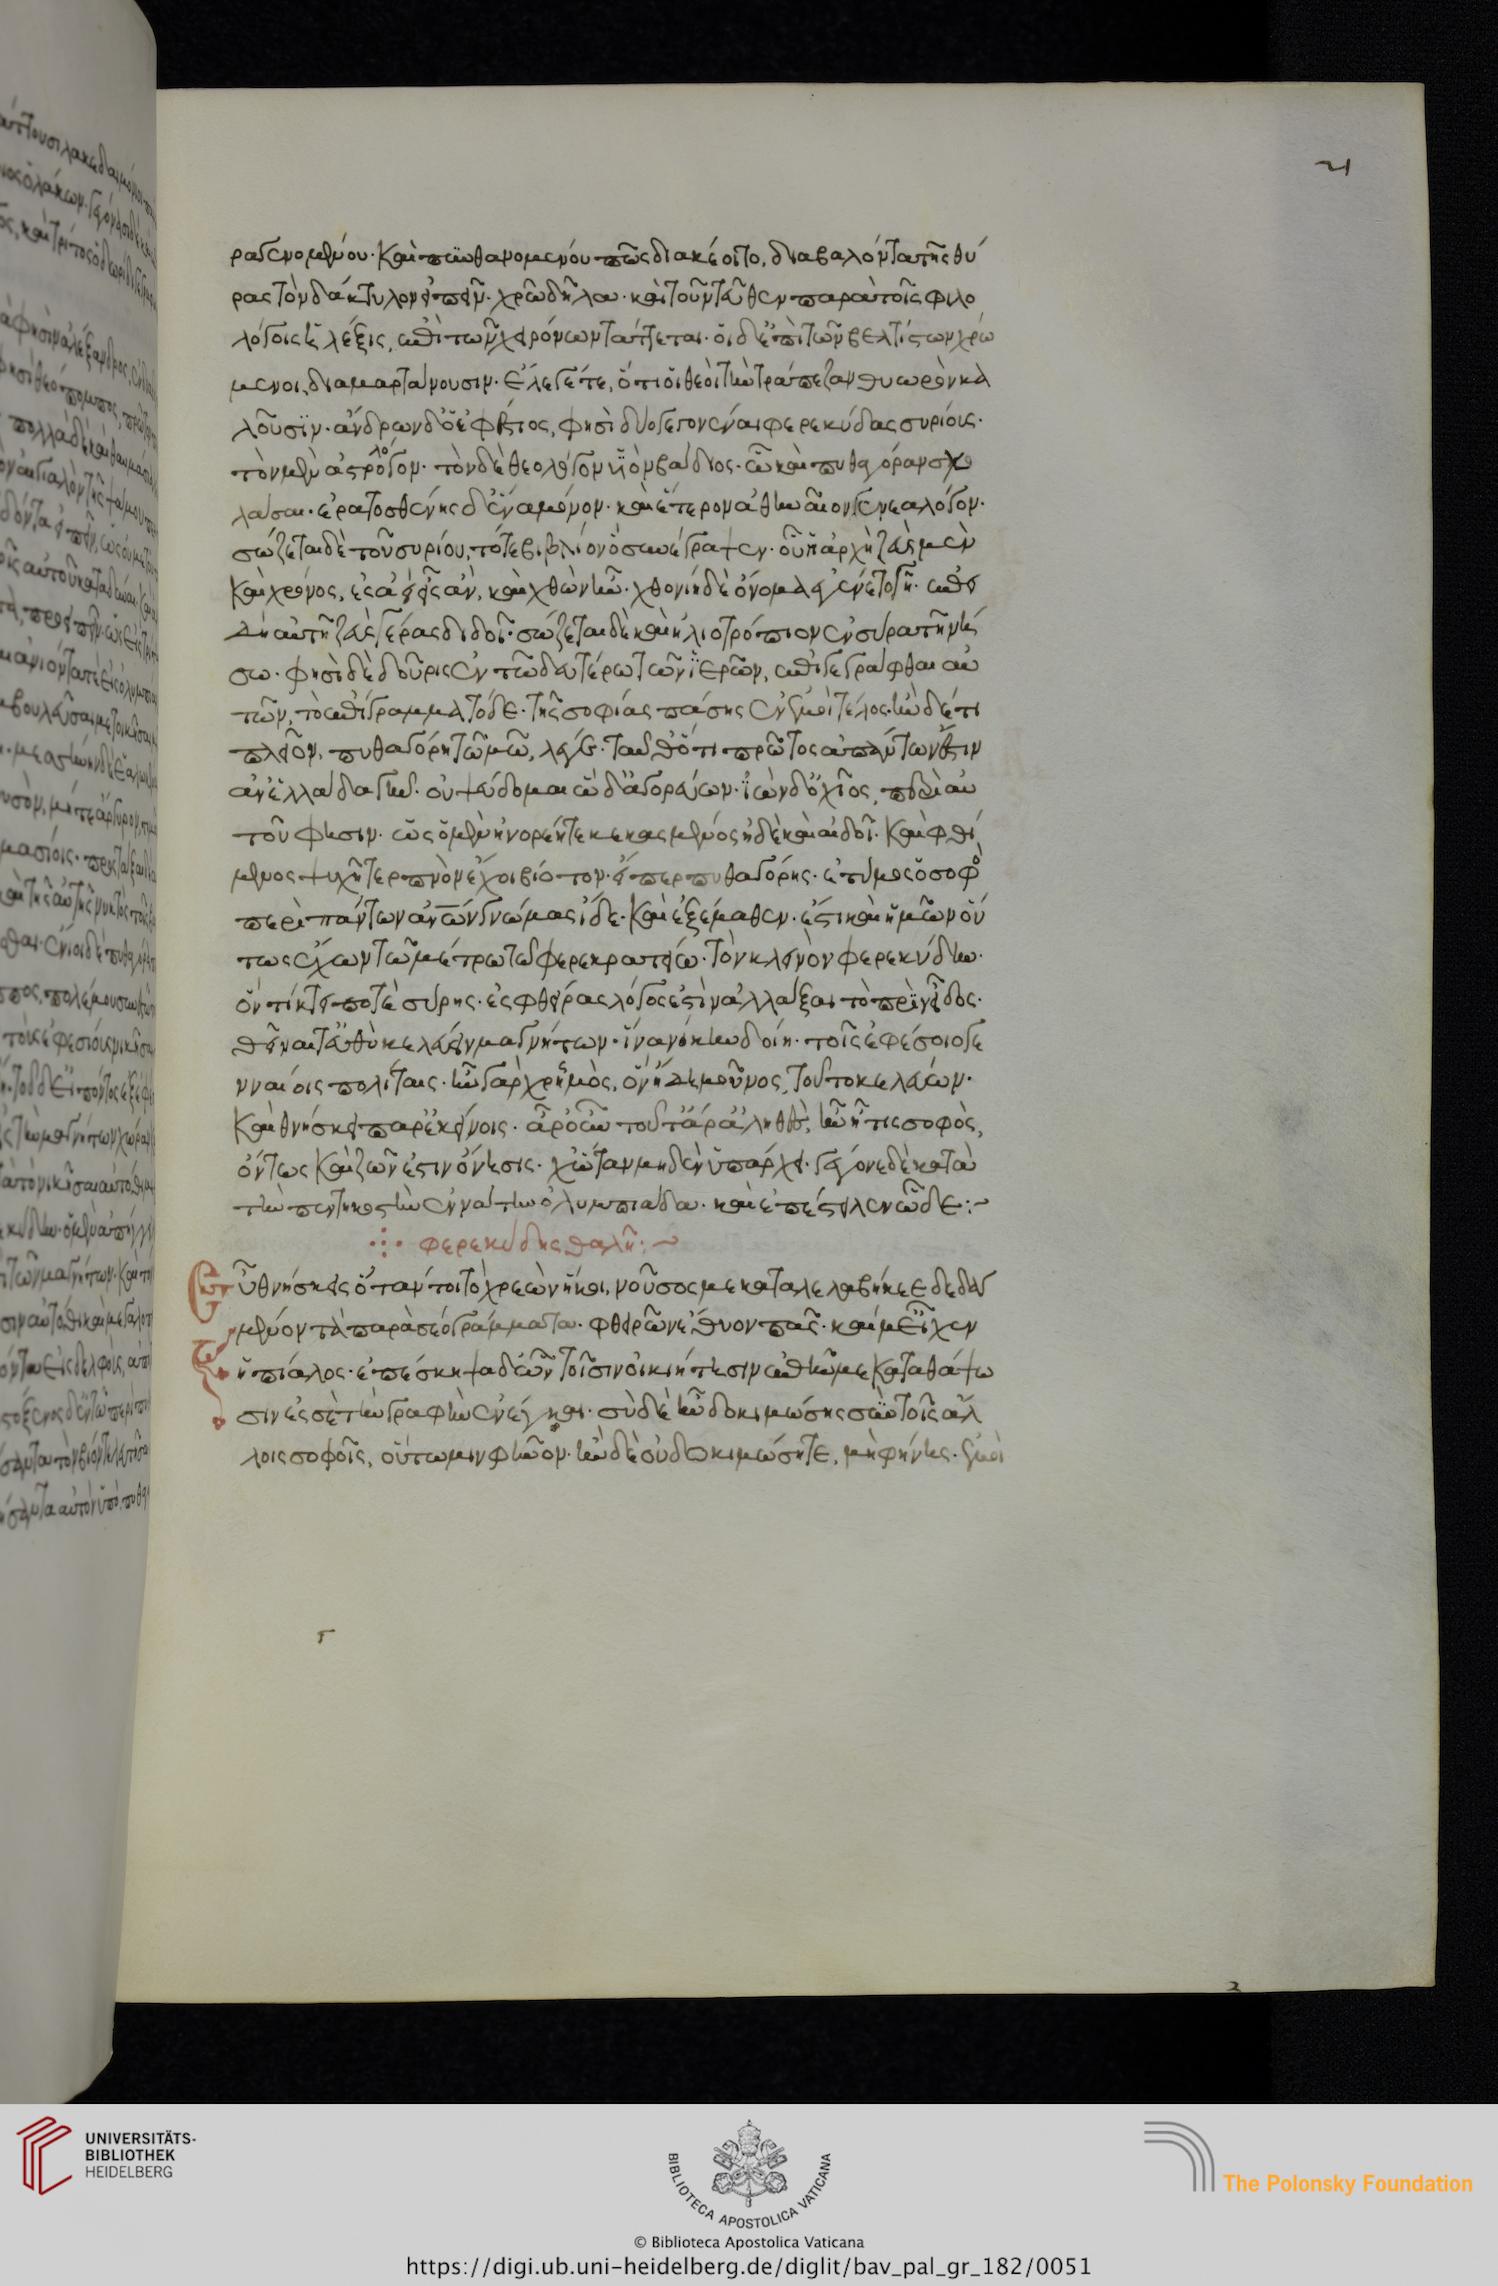 21
ραγενομένου. καὶ πυνθανομένου πῶς διακέοιτο, διαβαλόντα τῆς θύ
ρας τὸν δάκτυλον εἰπεῖν. χροῒ δῆλα. καὶ τοὐντεῦθεν παρὰ τοῖς φιλο
λόγοις ἡ λέξις, ἐπὶ τῶν χειρόνων τάττεται. οἱ δ' ἐπὶ τῶν βελτίστων χρώ
μενοι, διαμαρτάνουσιν. ἔλεγέ τε, ὅτι οἱ θεοὶ τὴν τράπεζαν θυωρὸν κα
λοῦσιν. ἄνδρων δ' ὁ ἐφέσιος, φησὶ δύο γεγονέναι φερεκύδας συρίους.
τὸν μὲν ἀστρολόγον. τὸν δὲ θεολόγον υἱὸν βάβιος. ὧ καὶ πυθαγόραν σχο
λάσαι. ἐρατοσθένης δ' ἕνα μόνον. καὶ ἕτερον ἀθηναῖον γενεαλόγον.
σώζεται δὲ τοῦ συρίου, τό τε βιβλίον ὃ συνέγραψεν. οὗ ἡ ἀρχὴ ζὰς μὲν
καὶ χρόνος, ἐς ἀεὶ εἰς ἂν, καὶ χθὼν ἦν. χθονίη δὲ ὄνομα ἐγένετο γῆ. ἐπει
δὴ αὐτῇ ζὰς γέρας διδοῖ. σώζεται δὲ καὶ ἡλιοτρόπιον ἐν σύρα τῇ νή
σω. φησὶ δὲ δοῦρις ἐν τῶ δευτέρω τῶν ἱερῶν, ἐπιγεγράφθαι αὐ
τῶν, τὸ ἐπίγραμμα τόδε. τῆς σοφίας πάσης ἐν ἐμοὶ τέλος. ἢν δέ τι
πλεῖον, πυθαγόρη τῶ 'μῶ, λέγε ταῦθ' ὅτι πρῶτος ἁπάντων ἔστιν
ἀν' ἑλλάδα γῆν. οὐ ψεύδομαι ὧδ' ἀγορεύων. ἴων δ' ὁ χῖος, περὶ αὐ
τοῦ φησιν. ὣς ὁ μὲν ἠνορέη τε κεκασμένος ἠδὲ καὶ αἰδοῖ. καὶ φθί
μενος ψυχῇ τερπνὸν ἔχει βίοτον. εἴπερ πυθαγόρης. ἐτύμως ὁ σοφὸς
περὶ πάντων ἀνθρώπων γνώμας ἴδε. καὶ ἐξέμαθεν. ἔστι καὶ ἡμῶν οὕ
τως ἔχων τῶ μέτρω τῶ φερεκρατείω. τὸν κλεινὸν φερεκύδην.
ὃν τίκτει ποτὲ σύρης. ἐς φθεῖρας λόγος ἐστὶν ἀλλάξαι τὸ πρὶν εἶδος.
θεῖναί τ' εὐθὺ κελεύειν μαγνήτων. ἵνα νίκην δοίη. τοῖς ἐφέσοιο γε
νναίοις πολίταις. ἦν γὰρ χρησμὸς, ὃν ᾔδει μοῦνος, τοῦτο κελεύων.
καὶ θνήσκει παρ' ἐκείνοις. ἆρ' ὂν τοῦτ' ἄρ' ἀληθὲς, ἢν ᾖ τις σοφὸς,
ὄντως καὶ ζῶν ἔστιν ὄνησις. χὥταν μηδὲν ὑπάρχει. γέγονε δὲ κατὰ
τὴν πεντηκοστὴν ἐννάτην ὀλυμπιάδα. καὶ ἐπέστειλεν ὧδε:~
φερεκύδης θαλῇ:~
Εὖ θνήσκεις ὅταν τοι τὸ χρεὼν ἥκοι, νοῦσός με καταλελάβηκε δεδεγ
μένον τὰ παρὰ σέο γράμματα. φθειρῶν ἔθυον πᾶς. καί μ' εἶχεν
ἠπίαλος. ἐπέσκηψα δ' ὦν τοῖσιν οἰκιήτησιν ἐπήν με καταθάψω
σιν ἐς σὲ τὴν γραφὴν ἐνέγκαι. σὺ δὲ ἢν δοκιμώσης σὺν τοῖς ἄλ
λοις σοφοῖς, οὕτω μιν φῆνον. ἢν δὲ οὐ δοκιμώσητε, μὴ φήνης. ἐμοὶ
UNIVERSITÄTS-
BIBLIOTHEK
HEIDELBERG
BIBLIOTECA APOSTOLICA VATICANA
The Polonsky Foundation
© Biblioteca Apostolica Vaticana
https://digi.ub.uni-heidelberg.de/diglit/bav_pal_gr_182/0051